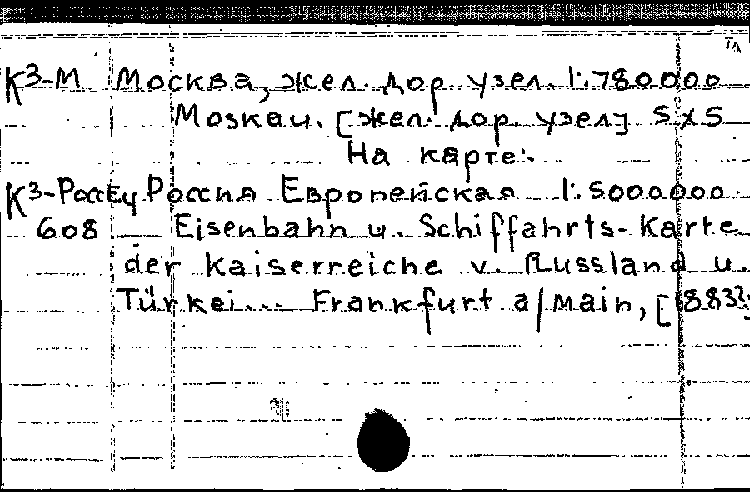 К3-М Москва, жел. дор. узел. 1:780000
Moskau. [жел. дор. узел] 5х5
На карте:
К3-РоссЕч Россия Европейская 1:5000000
608 Eisenbahn u. Schiffahrts-Karte
der Kaiserreiche v. Russland u.
Türkei... Frankfurt a/Main, [1883?]